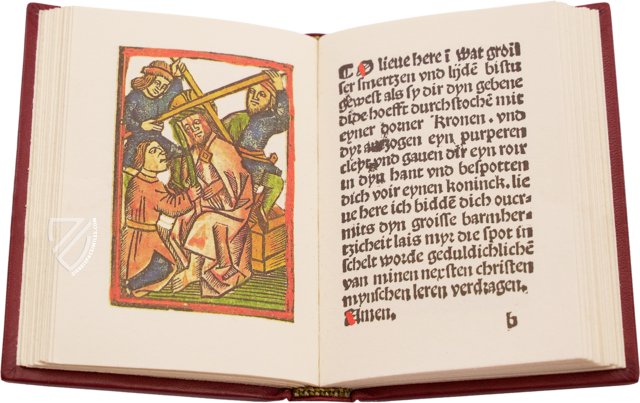 O lieue here ī wat groiſ
ſer ſmertzen vnd lijdē biſtu
geweſt als ſy dir dyn gebene
dide hoefft durchſtochē mit
eyner dorner Kronen. vnd
dyr antzogen eyn purperen
cleyt vnd gauen dir eyn roir
in dyn hant vnd beſpotten
dich voir eynen koninck. lie
ue here ich biddē dich ouer⸗
mits dyn groiſſe barmher⸗
tzicheit lais myr die ſpot in
ſchelt worde geduldichlichē
van minen nexſten chriſten
mynſchen leren verdragen.
Amen.
b